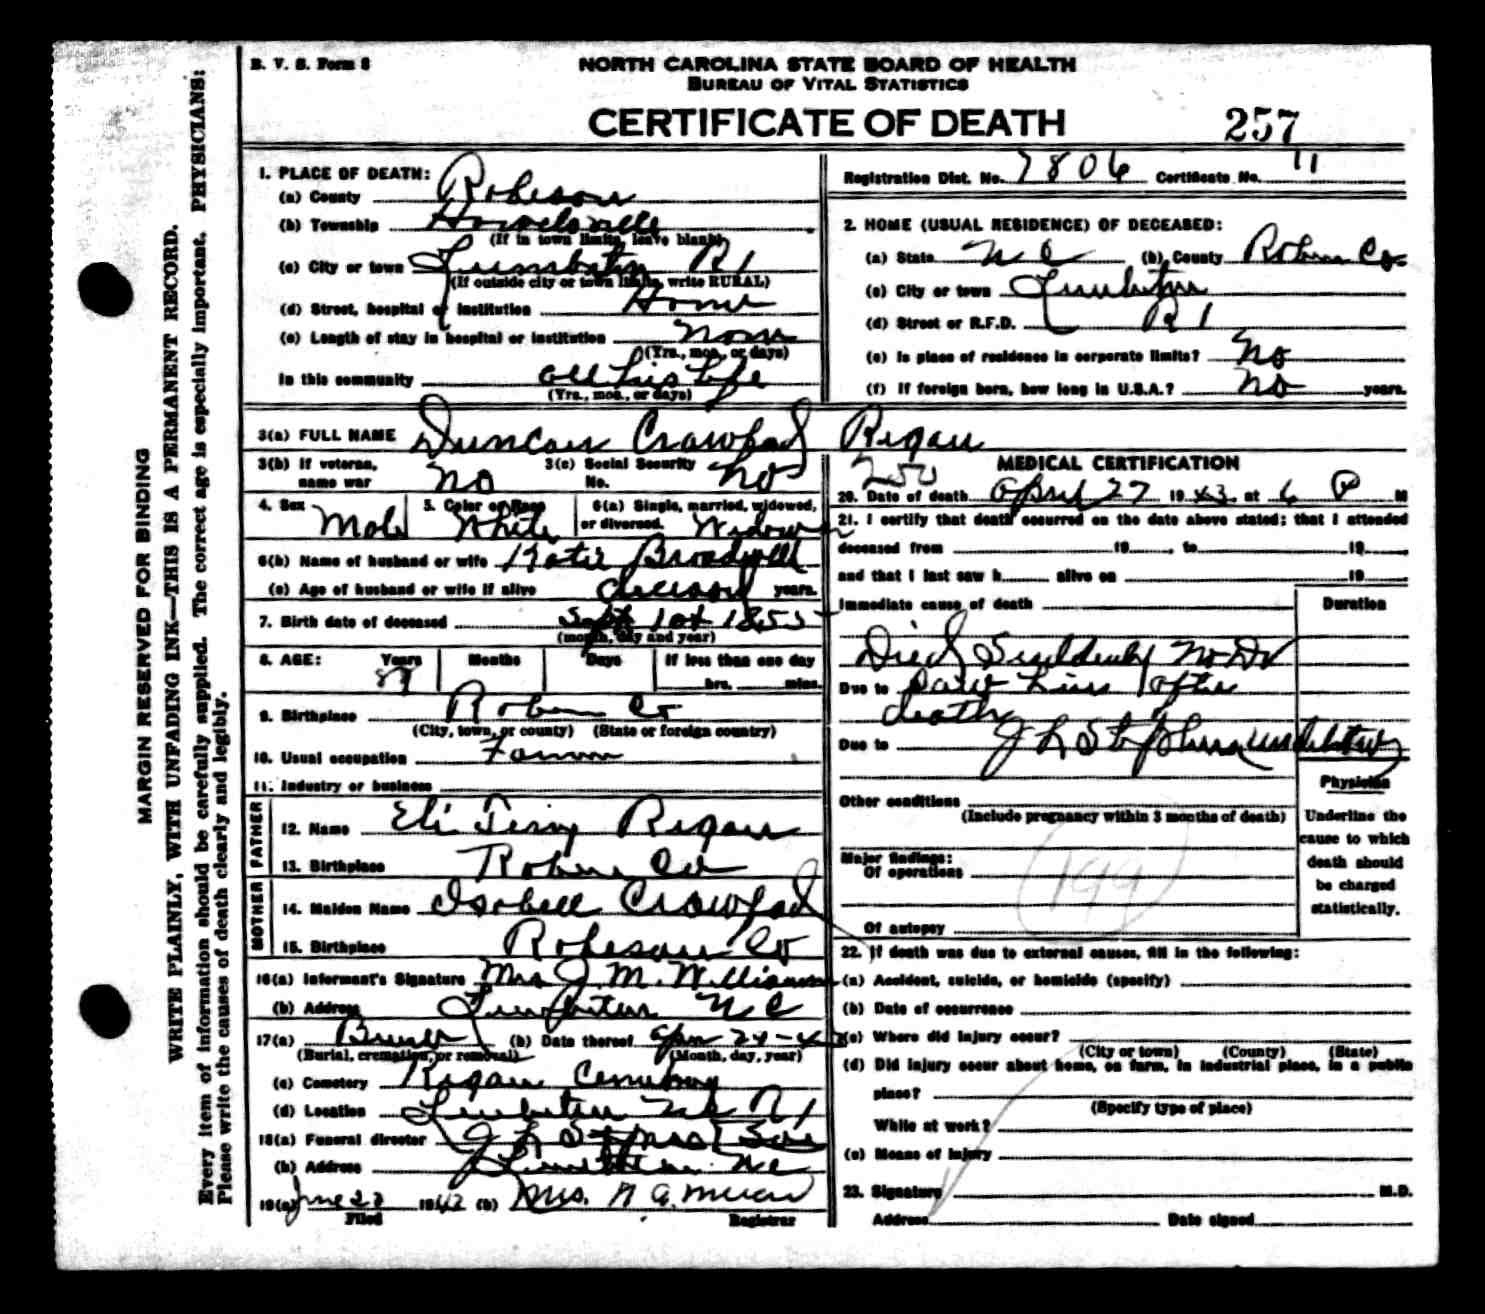 B. V. S. Form 8
NORTH CAROLINA STATE BOARD OF HEALTH
BUREAU OF VITAL STATISTICS
CERTIFICATE OF DEATH
257
MARGIN RESERVED FOR BINDING
WRITE PLAINLY, WITH UNFADING INK—THIS IS A PERMANENT RECORD.
Every item of information should be carefully supplied. The correct age is especially important. PHYSICIANS:
Please write the causes of death clearly and legibly.
1. PLACE OF DEATH:
(a) County Robeson
(b) Township Howelsville
(If in town limits, leave blank)
(c) City or town Lumberton R 1
(If outside city or town limits, write RURAL)
(d) Street, hospital or institution Home
(e) Length of stay in hospital or institution None
(Yrs., mos., or days)
In this community all his life
(Yrs., mos., or days)
Registration Dist. No. 7806 Certificate No. 11
2. HOME (USUAL RESIDENCE) OF DECEASED:
(a) State N C (b) County Robeson Co
(c) City or town Lumberton
(d) Street or R.F.D. R 1
(e) Is place of residence in corporate limits? No
(f) If foreign born, how long in U.S.A.? No years.
3(a) FULL NAME Duncan Crawford Regan
3(b) If veteran, name war No
3(c) Social Security No. No
4. Sex Male
5. Color or Race White
6(a) Single, married, widowed, or divorced. Widower
6(b) Name of husband or wife Katie Broadwell
(c) Age of husband or wife if alive years.
7. Birth date of deceased Sept 1st 1855
(month, day and year)
8. AGE: Years Months Days If less than one day
hrs. mins.
9. Birthplace Robeson Co
(City, town, or county) (State or foreign country)
10. Usual occupation Farmer
11. Industry or business
FATHER
12. Name Eli Regan
13. Birthplace Robeson Co
MOTHER
14. Maiden Name Isabell Crawford
15. Birthplace Robeson Co
16(a) Informant's Signature Mrs J. M. Williamson
(b) Address Lumberton N C
17(a) Burial (b) Date thereof
(Burial, cremation, or removal) (Month, day, year)
(c) Cemetery Regan Cemetery
(d) Location Lumberton N C R 1
18(a) Funeral director J L Stephens Sons
(b) Address Lumberton N C
19(a) June 22 19 (b) Mrs.
Filed Registrar
250
MEDICAL CERTIFICATION
20. Date of death April 27 1943 at 6 P M
21. I certify that death occurred on the date above stated; that I attended
deceased from 19 , to 19
and that I last saw h alive on 19
Immediate cause of death
Duration
Died Suddenly No Dr
Due to saw him after
death
Due to J L Stephens undertaker
Other conditions
(Include pregnancy within 3 months of death)
Major findings:
Of operations
199
Of autopsy
Physician
Underline the
cause to which
death should
be charged
statistically.
22. If death was due to external causes, fill in the following:
(a) Accident, suicide, or homicide (specify)
(b) Date of occurrence
(c) Where did injury occur?
(City or town) (County) (State)
(d) Did injury occur about home, on farm, in industrial place, in a public
place?
(Specify type of place)
While at work?
(e) Means of injury
23. Signature M.D.
Address Date signed